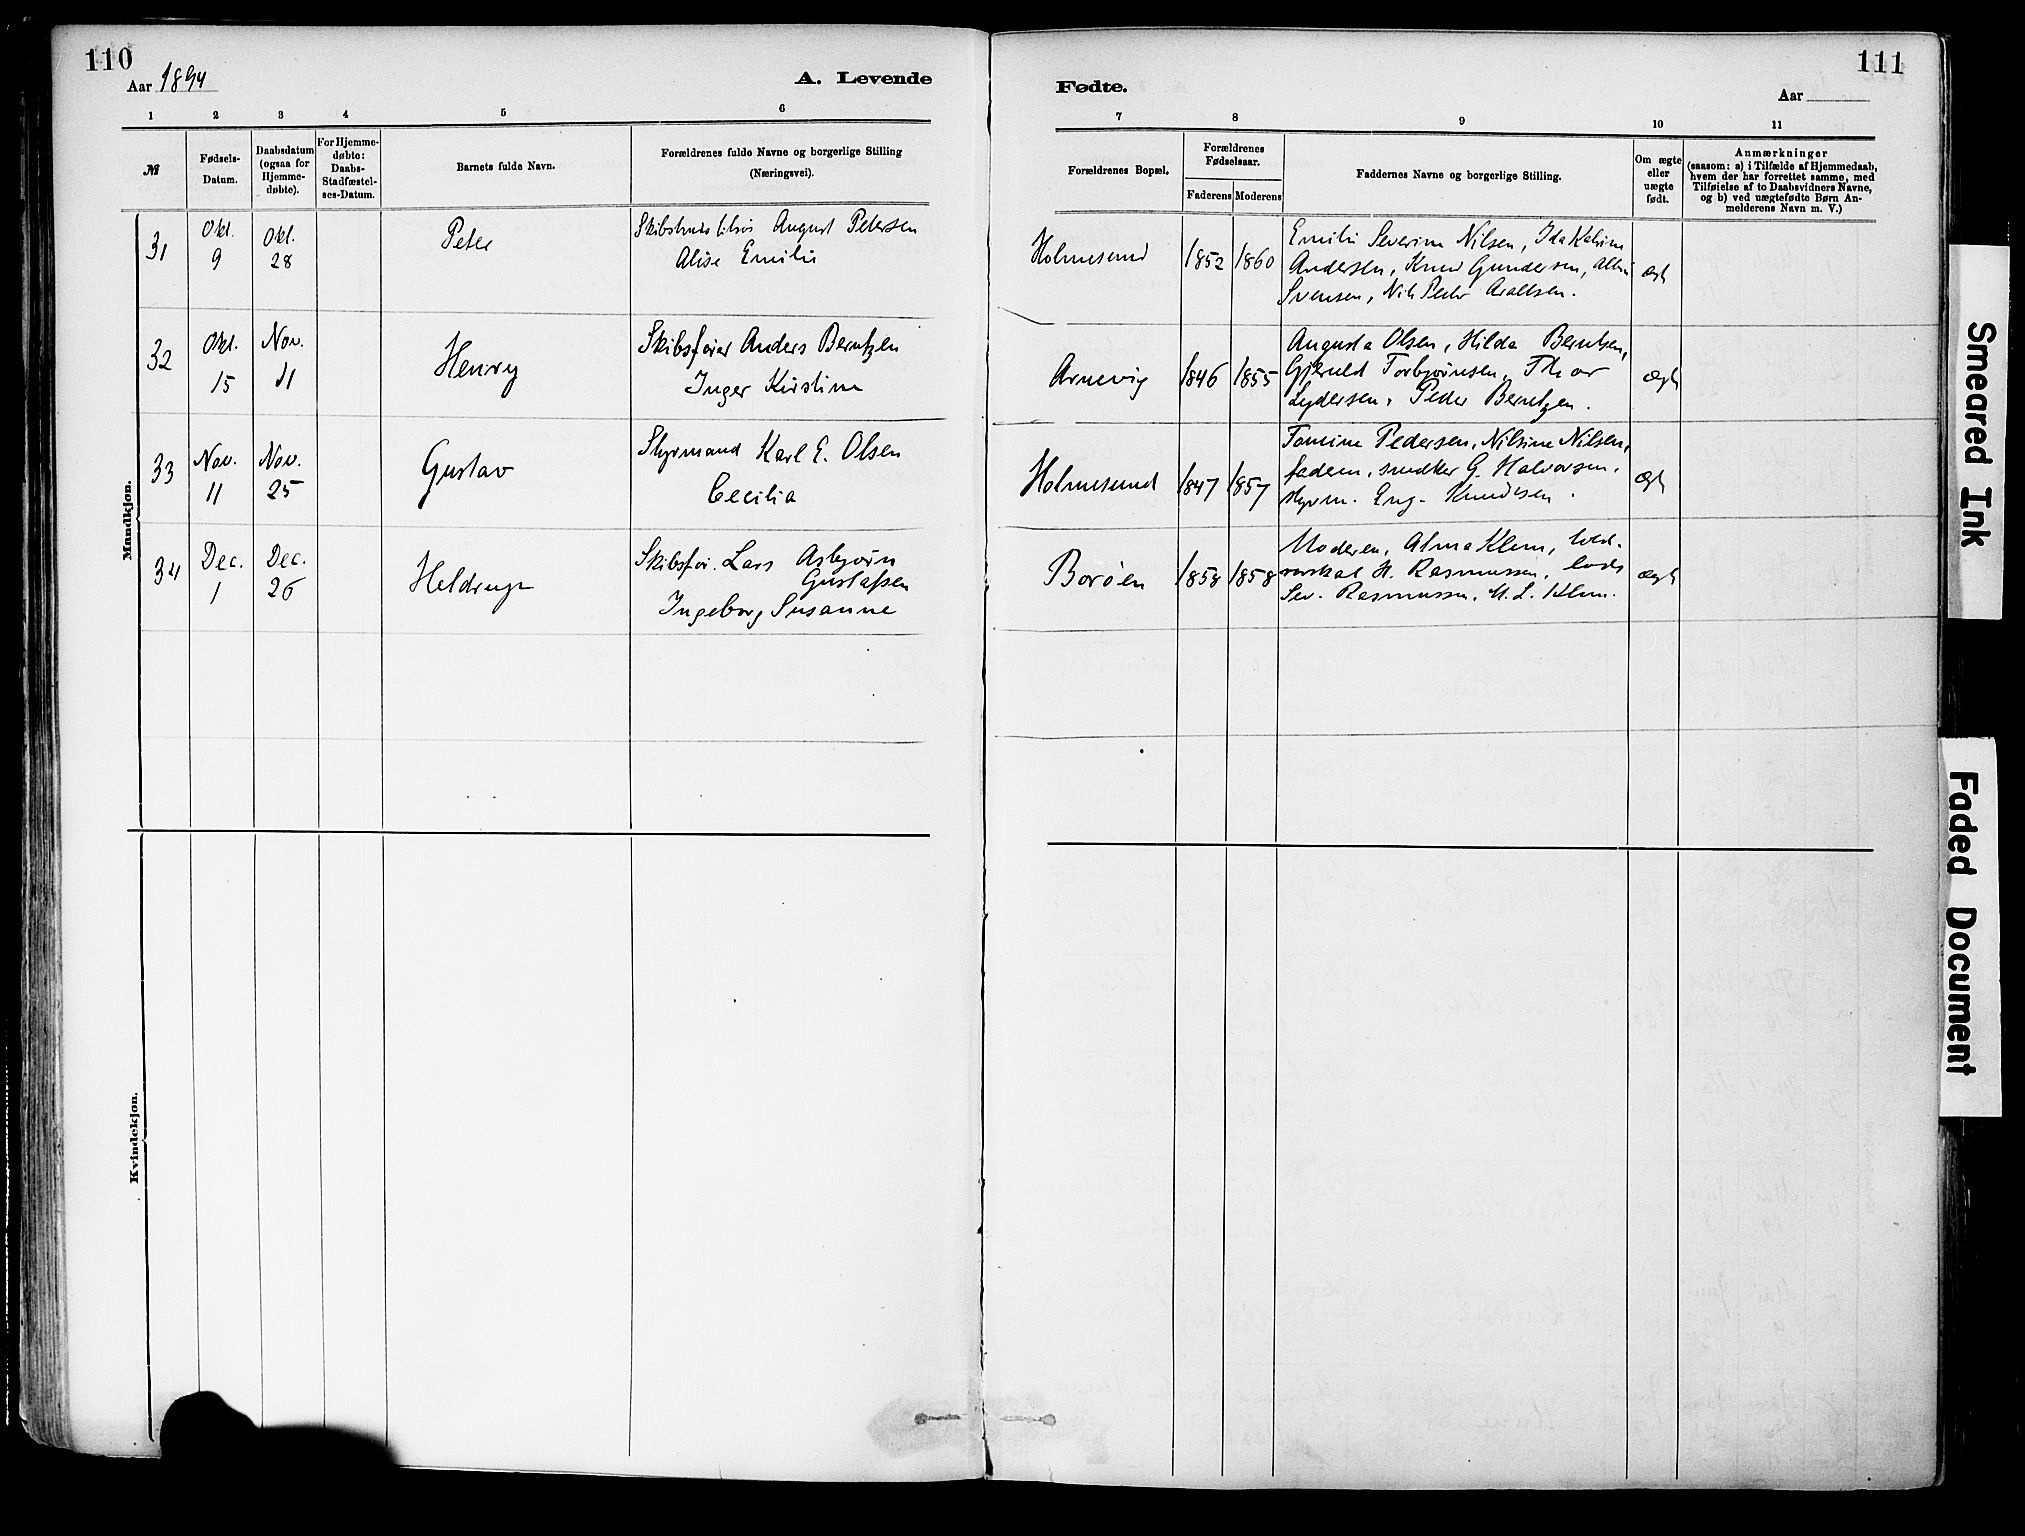 110
Aar 1894
A. Levende
1 2 3 4 5 6
№
Fødsels-
Datum.
Daabsdatum
(ogsaa for
Hjemme-
døbte).
For Hjemme-
døbte:
Daabs-
Stadfæstel-
ses-Datum.
Barnets fulde Navn.
Forældrenes fulde Navne og borgerlige Stilling
(Næringsvei).
Mandkjøn.
31
Okt.
9
Okt.
28
Peter
August Petersen
Alise Emilie
32
Okt.
15
Nov.
11
Henry
Skibsfører Anders Berntzen
Inger Kirstine
33
Nov.
11
Nov.
25
Gustav
Styrmand Karl E. Olsen
Cecilia
34
Dec.
1
Dec.
26
Skibsfør. Lars Asbjørn
Gustafsen
Ingeborg Susanne
Kvindekjøn.
111
Fødte.
Aar
7 8 9 10 11
Forældrenes Bopæl.
Forældrenes
Fødselsaar.
Faderens Moderens
Faddernes Navne og borgerlige Stilling.
Om ægte
eller
uægte
født.
Anmærkninger
(saasom: a) i Tilfælde af Hjemmedaab,
hvem der har forrettet samme, med
Tilføielse af to Daabsvidners Navne,
og b) ved uægtefødte Børn An-
melderens Navn m. V.)
Holmesund
1852 1860
Emilie Severine Nilsen, Ida Katrine
Andersen, Knud Gundersen,
Svensen, Nils Peder
ægt
Arnevig
1846 1855
Augusta Olsen, Hilda Berntsen,
Gjeruld Torbjørnsen, Thor
Lydersen, Peder Berntzen.
ægt
Holmesund
1847 1857
Tomine Pedersen, Nilsine Nilsen,
faderen, snedker G. Halvorsen,
styrm. Eng. Knudsen.
ægt
Borøen
1858 1858
Moderen, Alma Klem,
H. Rasmussen, lods
Sev. Rasmussen, M. L. Klem.
ægt
Smeared Ink
Faded Document